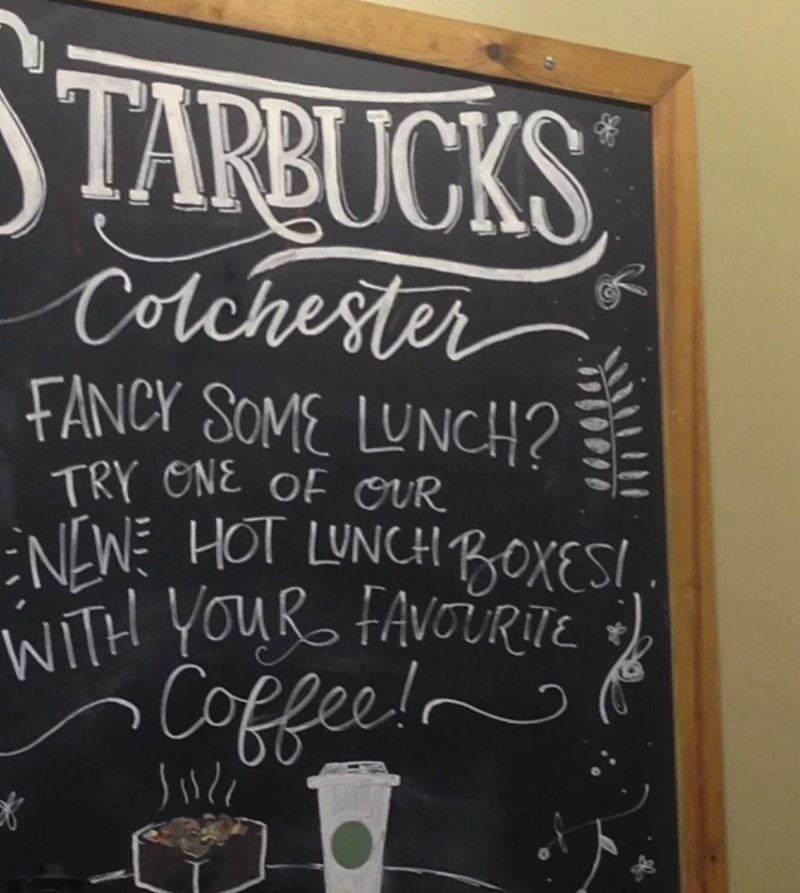 STARBUCKS
Colchester
FANCY SOME LUNCH?
TRY ONE OF OUR
NEW HOT LUNCH BOXES!
WITH YOUR FAVOURITE
Coffee!